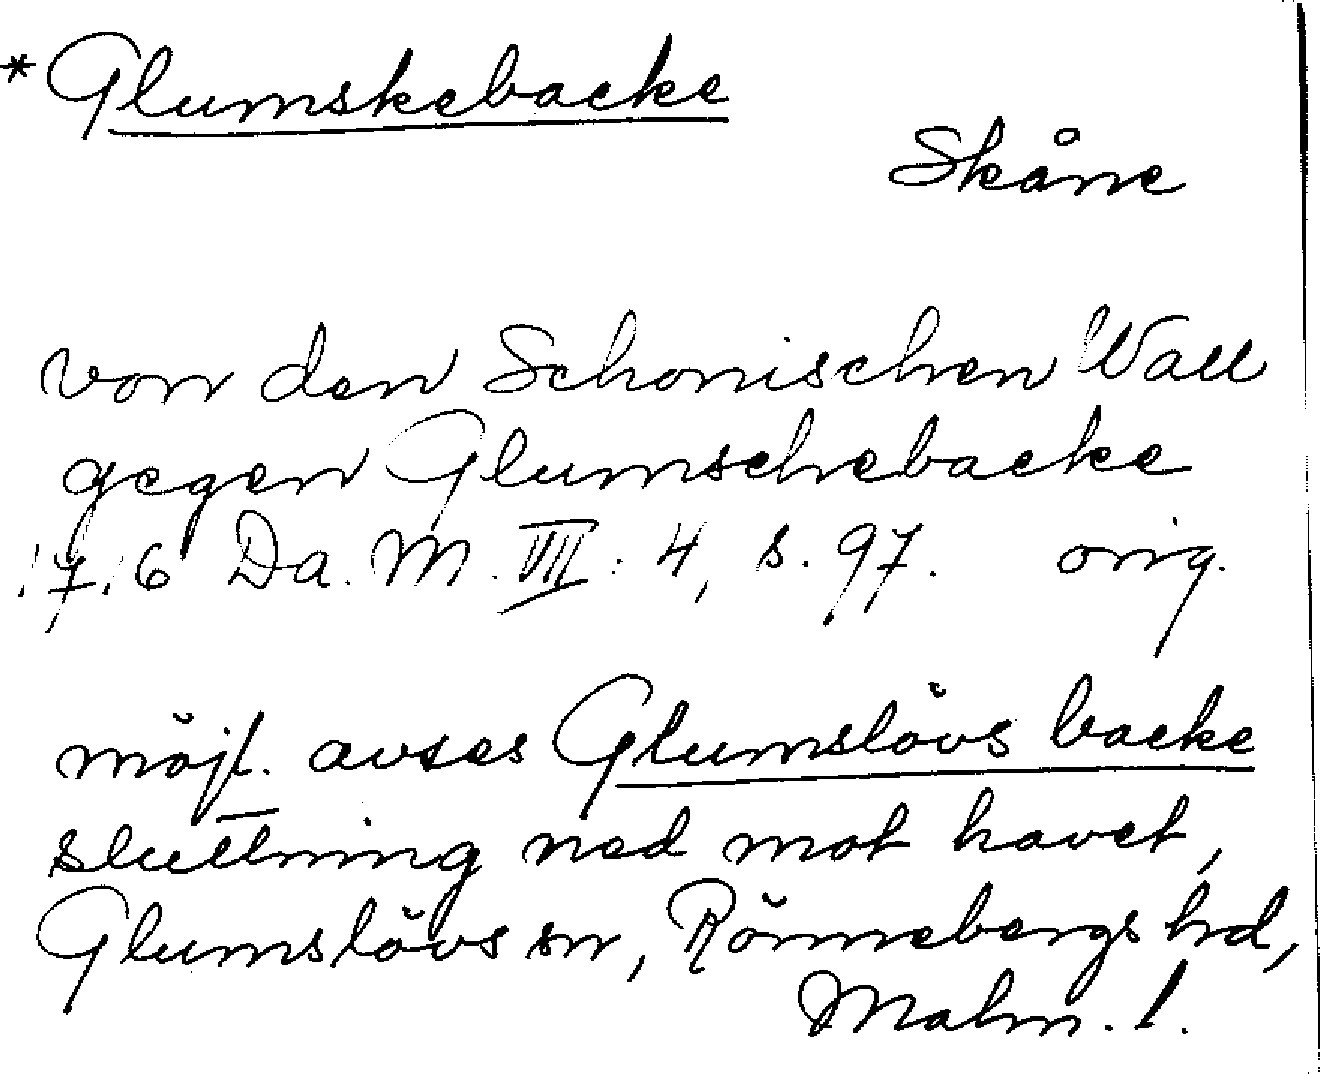 * Glumskebacke
Skåne
von den Schonischen Wall
gegen Glumschebacke
1716 Da. M. VII: 4, s. 97. orig.
möjl. avses Glumslövs backe
sluttning ned mot havet,
Glumslövs sn, Rönnebergs hd,
Malm. l.